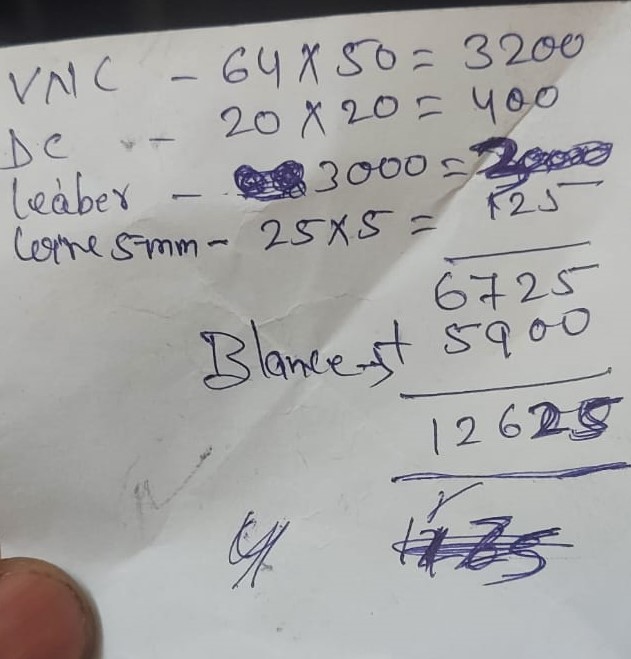 VMC - 64 X 50 = 3200
DC - 20 X 20 = 400
leaber - 3000 =
5mm - 25 X 5 = 125
6725
Blance → 5900
12625